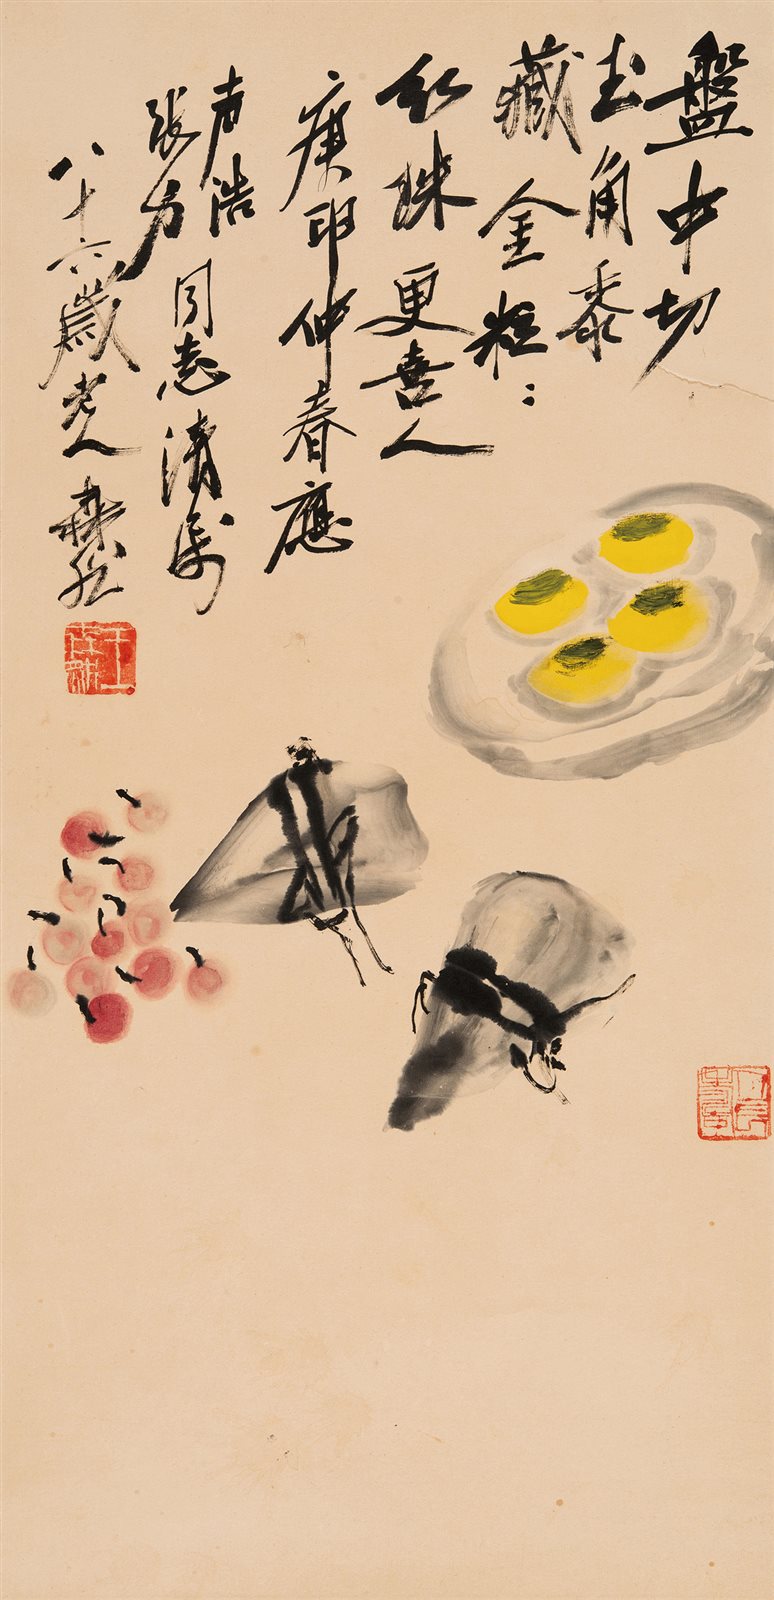 盤中切
玉角黍
藏金粒〻
红珠更喜人
庚申仲春應
声浩
张方
同志清属
八十六歲老人森然